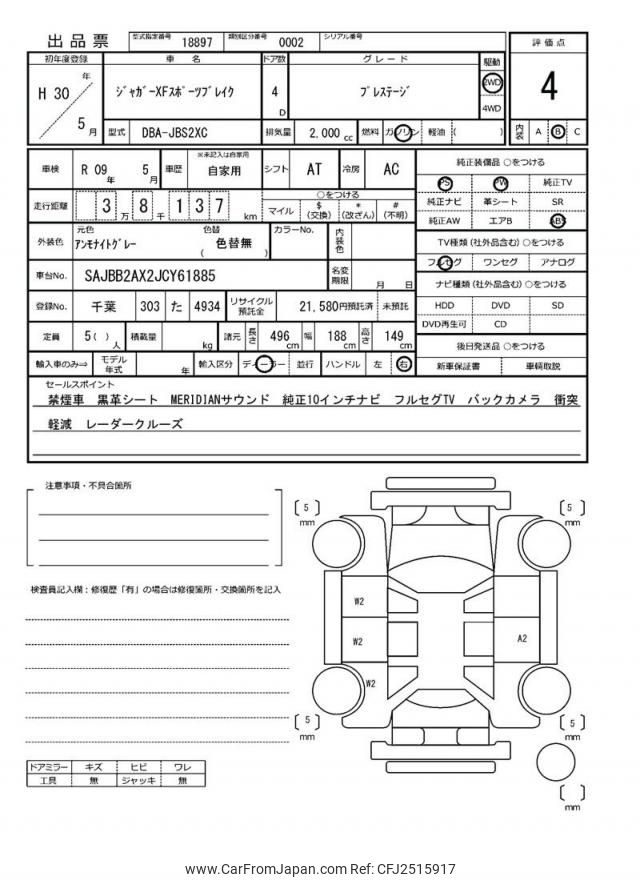 出品票
型式指定番号 18897 類別区分番号 0002 シリアル番号
初年度登録 車 名 ドア数 グレード 駆動 評価点
H 30 年 5 月
ジャガーXFスポーツブレイク 4 D プレステージ 2WD 4WD
4
型式 DBA-JBS2XC 排気量 2,000 cc 燃料 ガソリン 軽油 ( ) 内装 A B C
車検 R 09 年 5 月 車歴 ※未記入は自家用 自家用 シフト AT 冷房 AC
純正装備品 ○をつける
PS PW 純正TV
純正ナビ 革シート SR
純正AW エアB ABS
走行距離 3 万 8 千 1 3 7 km
○をつける
マイル $ (交換) * (改ざん) # (不明)
外装色 元色 アンモナイトグレー 色替 ( 色替無 ) カラーNo. 内装色
TV種類 (社外品含む) ○をつける
フルセグ ワンセグ アナログ
車台No. SAJBB2AX2JCY61885 名変期限 月 日
ナビ種類 (社外品含む) ○をつける
HDD DVD SD
DVD再生可 CD
登録No. 千葉 303 た 4934 リサイクル預託金 21,580円預託済 未預託
定員 5( ) 人 積載量 kg 諸元 長さ 496 cm 幅 188 cm 高さ 149 cm
後日発送品 ○をつける
新車保証書 車輌取説
輸入車のみ⇒ モデル年式 年 輸入区分 ディーラー 並行 ハンドル 左 右
セールスポイント
禁煙車 黒革シート MERIDIANサウンド 純正10インチナビ フルセグTV バックカメラ 衝突
軽減 レーダークルーズ
注意事項・不具合箇所
検査員記入欄：修復歴「有」の場合は修復箇所・交換箇所を記入
5 mm
5 mm
W2
W2
A2
W2
5 mm
5 mm
mm
ドアミラー キズ ヒビ ワレ
工具 無 ジャッキ 無
www.CarFromJapan.com Ref: CFJ2515917